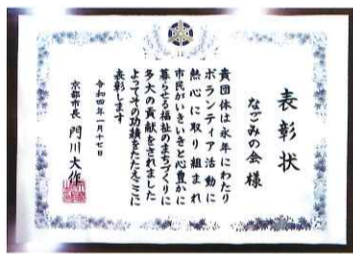 表彰状
なごみの会 様
貴団体は永年にわたり
ボランティア活動に
熱心に取り組まれ
市民がいきいきと心豊かに
暮らせる福祉のまちづくりに
多大の貢献をされました
よってその功績をたたえここに
表彰します
令和四年一月十七日
京都市長 門川大作